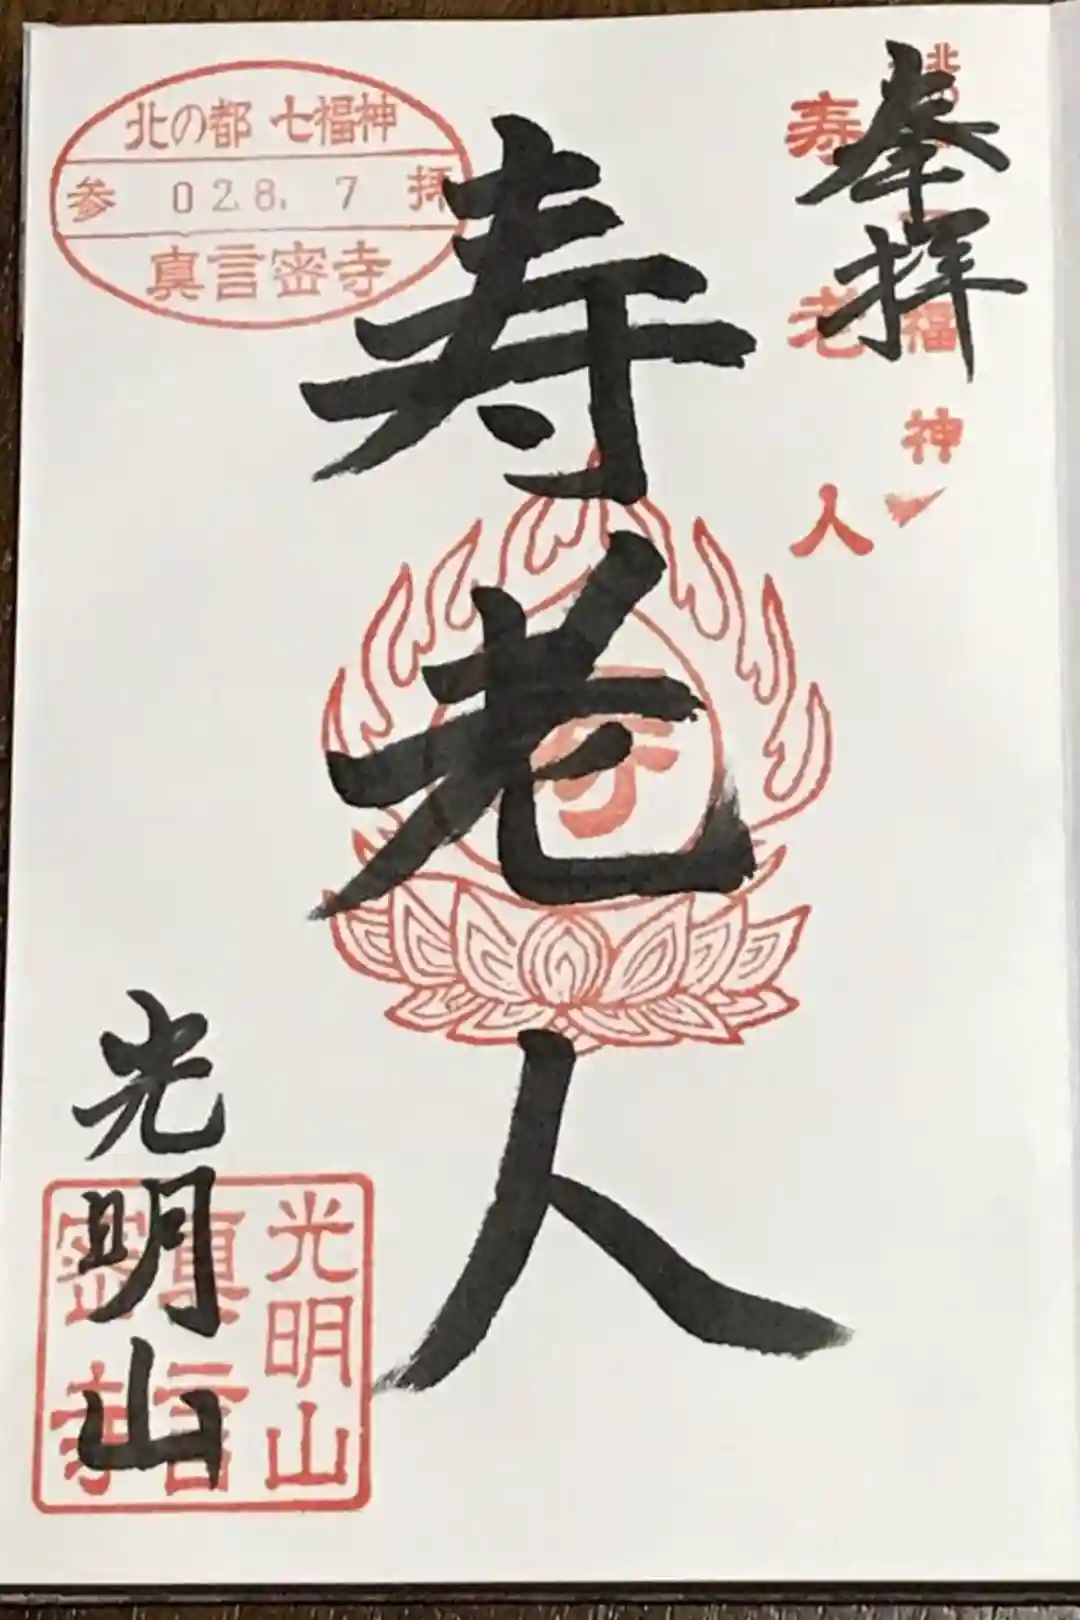 奉拝
北 福神
寿老人
寿老人
寿
北の都 七福神
参 02.8.7 拝
真言密寺
光明山
光明山
真言
密寺